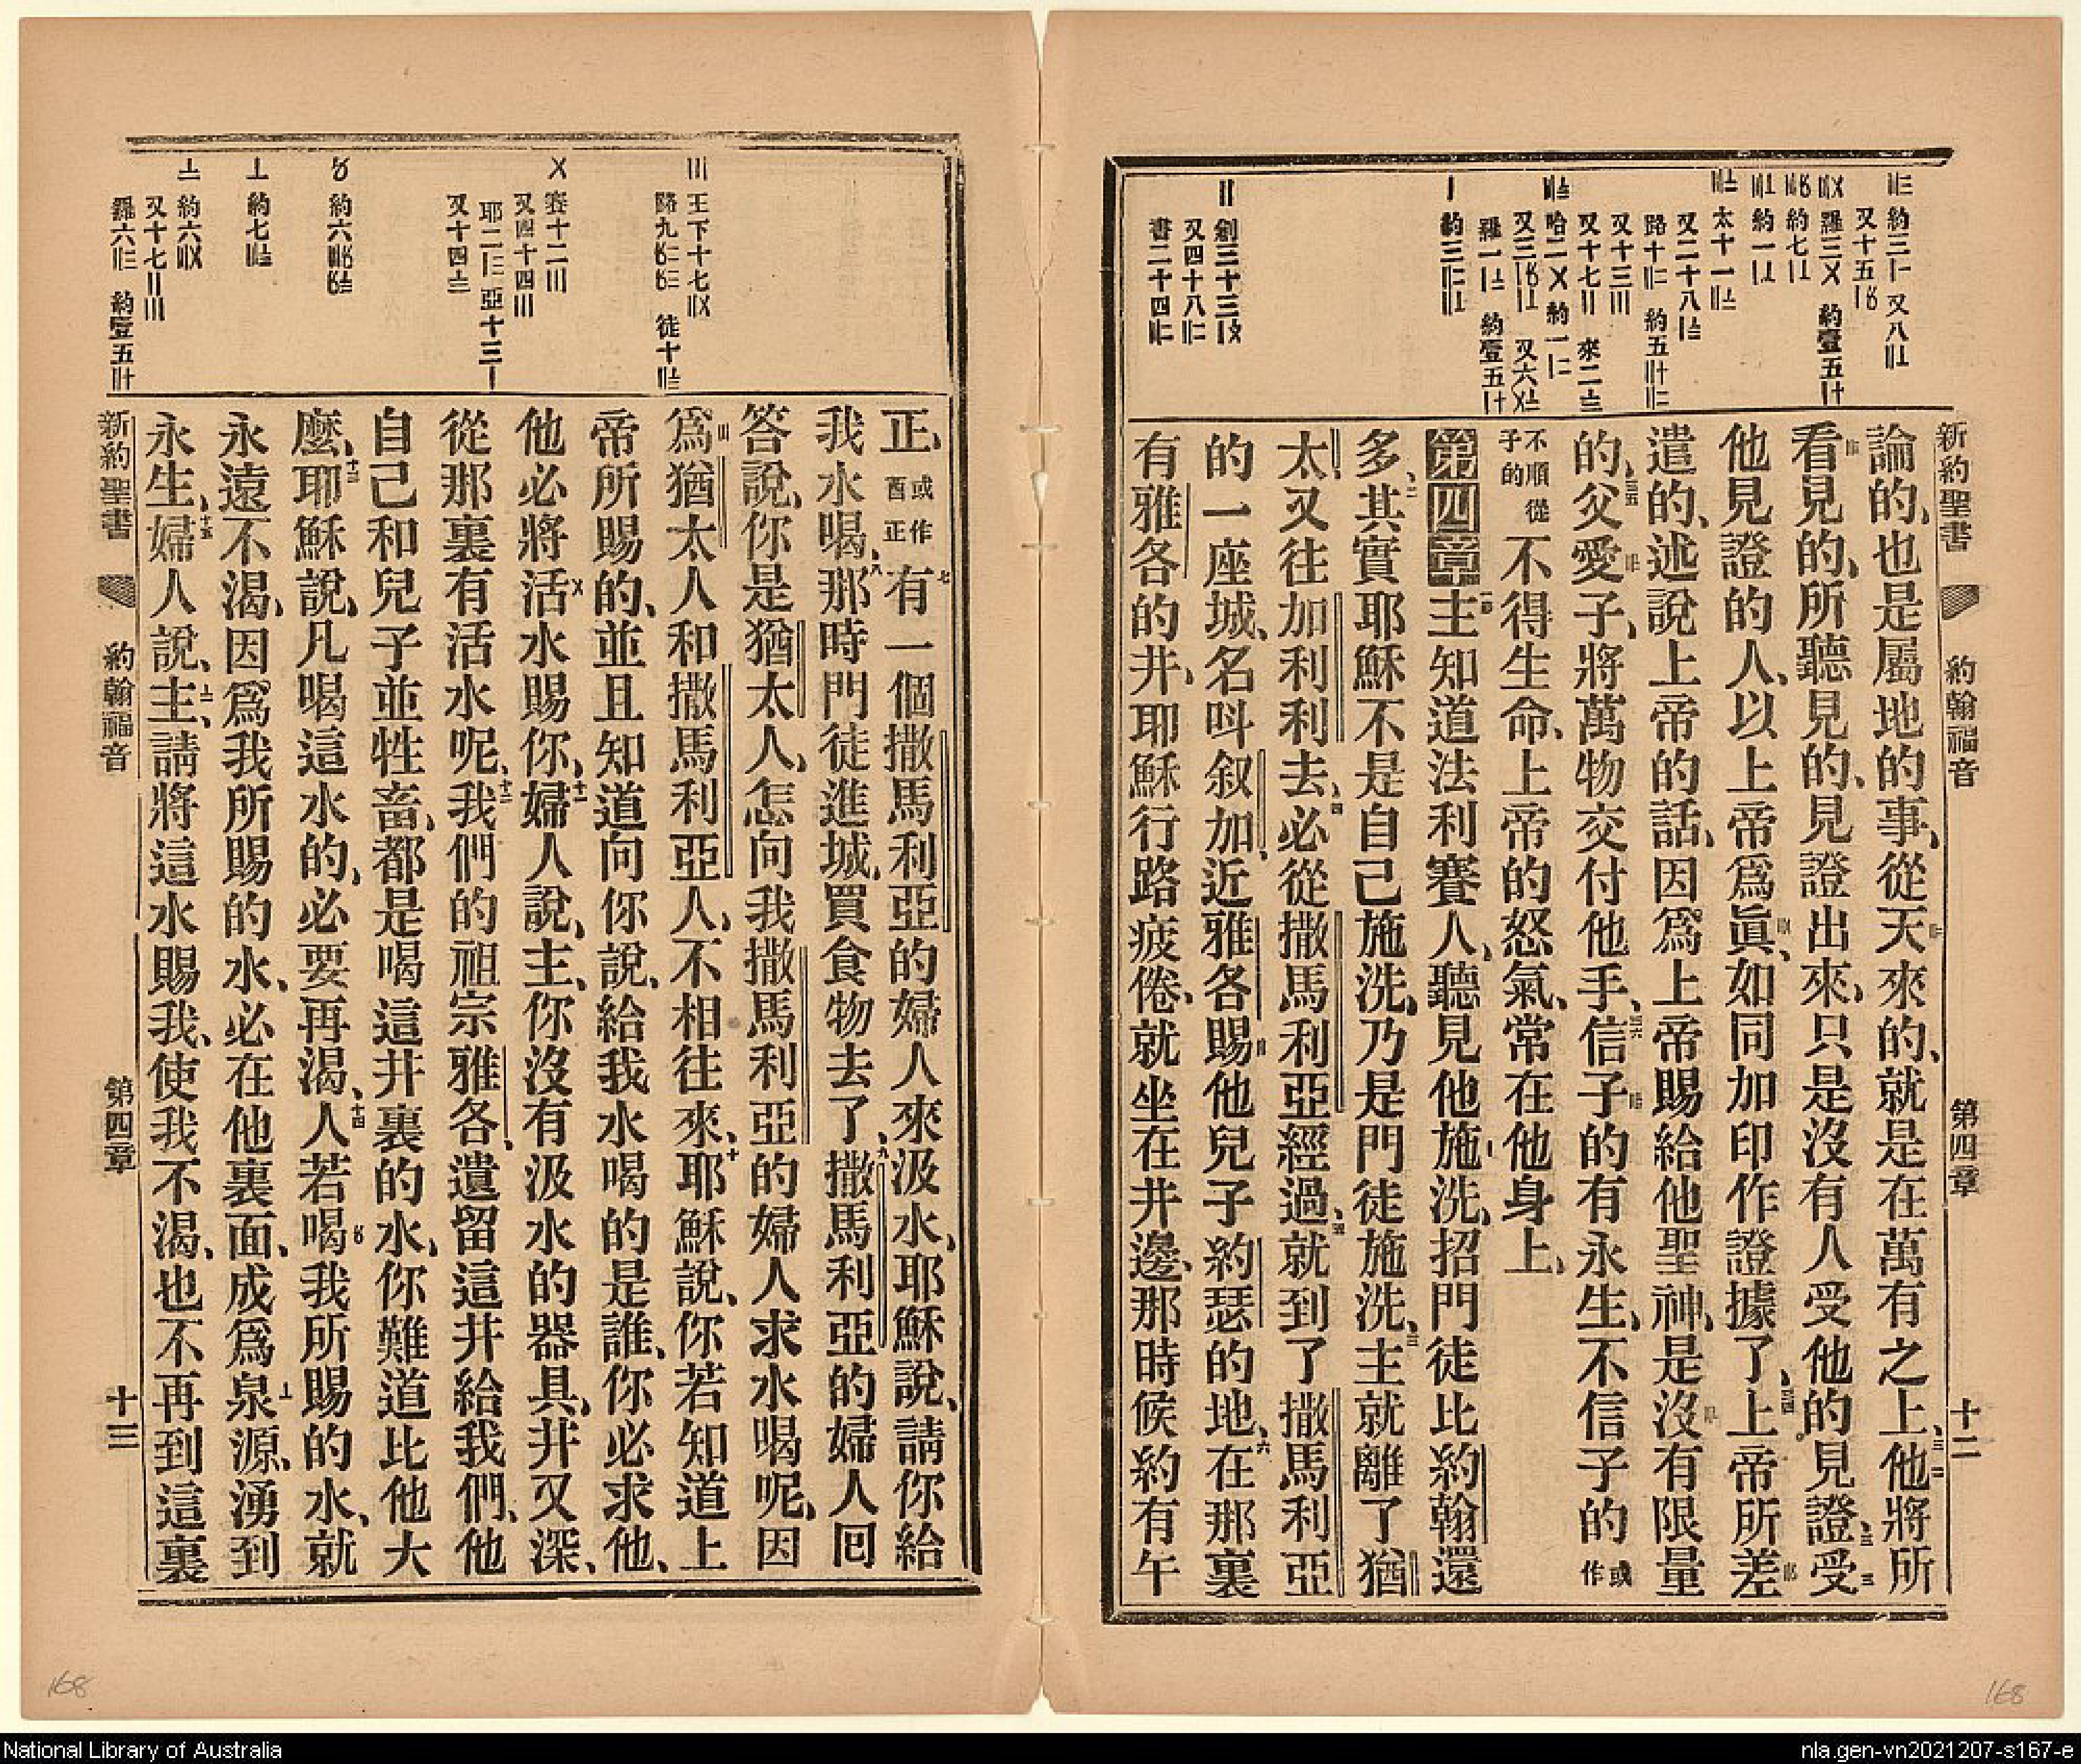 新約聖書 約翰福音 第四章 十二
論的、也是屬地的事、從天來的、就是在萬有之上、三二他將所
看見的、所聽見的、見證出來、只是沒有人受他的見證、三三受
他見證的人、以上帝爲眞、如同加印作證據了、三四上帝所差
遣的、述說上帝的話、因爲上帝賜給他聖神、是沒有限量
的、三五父愛子、將萬物交付他手、三六信子的有永生、不信子的或作
不順從子的不得生命、上帝的怒氣、常在他身上、
第四章一節主知道法利賽人、聽見他施洗、招門徒比約翰還
多、二其實耶穌不是自己施洗、乃是門徒施洗、三主就離了猶
太、又往加利利去、四必從撒馬利亞經過、五就到了撒馬利亞
的一座城、名呌叙加、近雅各賜他兒子約瑟的地、六在那裏
有雅各的井、耶穌行路疲倦、就坐在井邊、那時候約有午
正、或作酉正七有一個撒馬利亞的婦人來汲水、耶穌說、請你給
我水喝、八那時門徒進城、買食物去了、九撒馬利亞的婦人囘
答說、你是猶太人、怎向我撒馬利亞的婦人求水喝呢、因
爲猶太人和撒馬利亞人、不相往來、十耶穌說、你若知道上
帝所賜的、並且知道向你說、給我水喝的是誰、你必求他、
他必將活水賜你、十一婦人說、主、你沒有汲水的器具、井又深、
從那裏有活水呢、十二我們的祖宗雅各、遺留這井給我們、他
自己和兒子並牲畜、都是喝這井裏的水、你難道比他大
麼、十三耶穌說、凡喝這水的、必要再渴、十四人若喝我所賜的水、就
永遠不渴、因爲我所賜的水、必在他裏面、成爲泉源、湧到
永生、十五婦人說、主、請將這水賜我、使我不渴、也不再到這裏
新約聖書 約翰福音 第四章 十三
168
168
National Library of Australia
nla.gen-vn2021207-s167-e